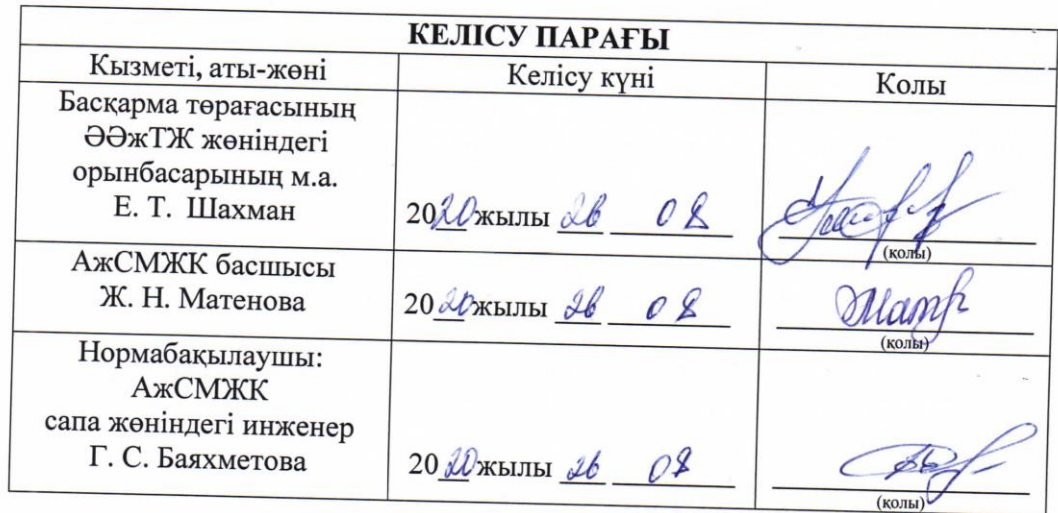 КЕЛІСУ ПАРАҒЫ
Кызметі, аты-жөні
Келісу күні
Колы
Басқарма төрағасының
ӘӘжТЖ жөніндегі
орынбасарының м.а.
Е. Т. Шахман
2020жылы 26 08
(қолы)
АжСМЖК басшысы
Ж. Н. Матенова
2020жылы 26 08
(қолы)
Нормабақылаушы:
АжСМЖК
сапа жөніндегі инженер
Г. С. Баяхметова
2020жылы 26 08
(қолы)